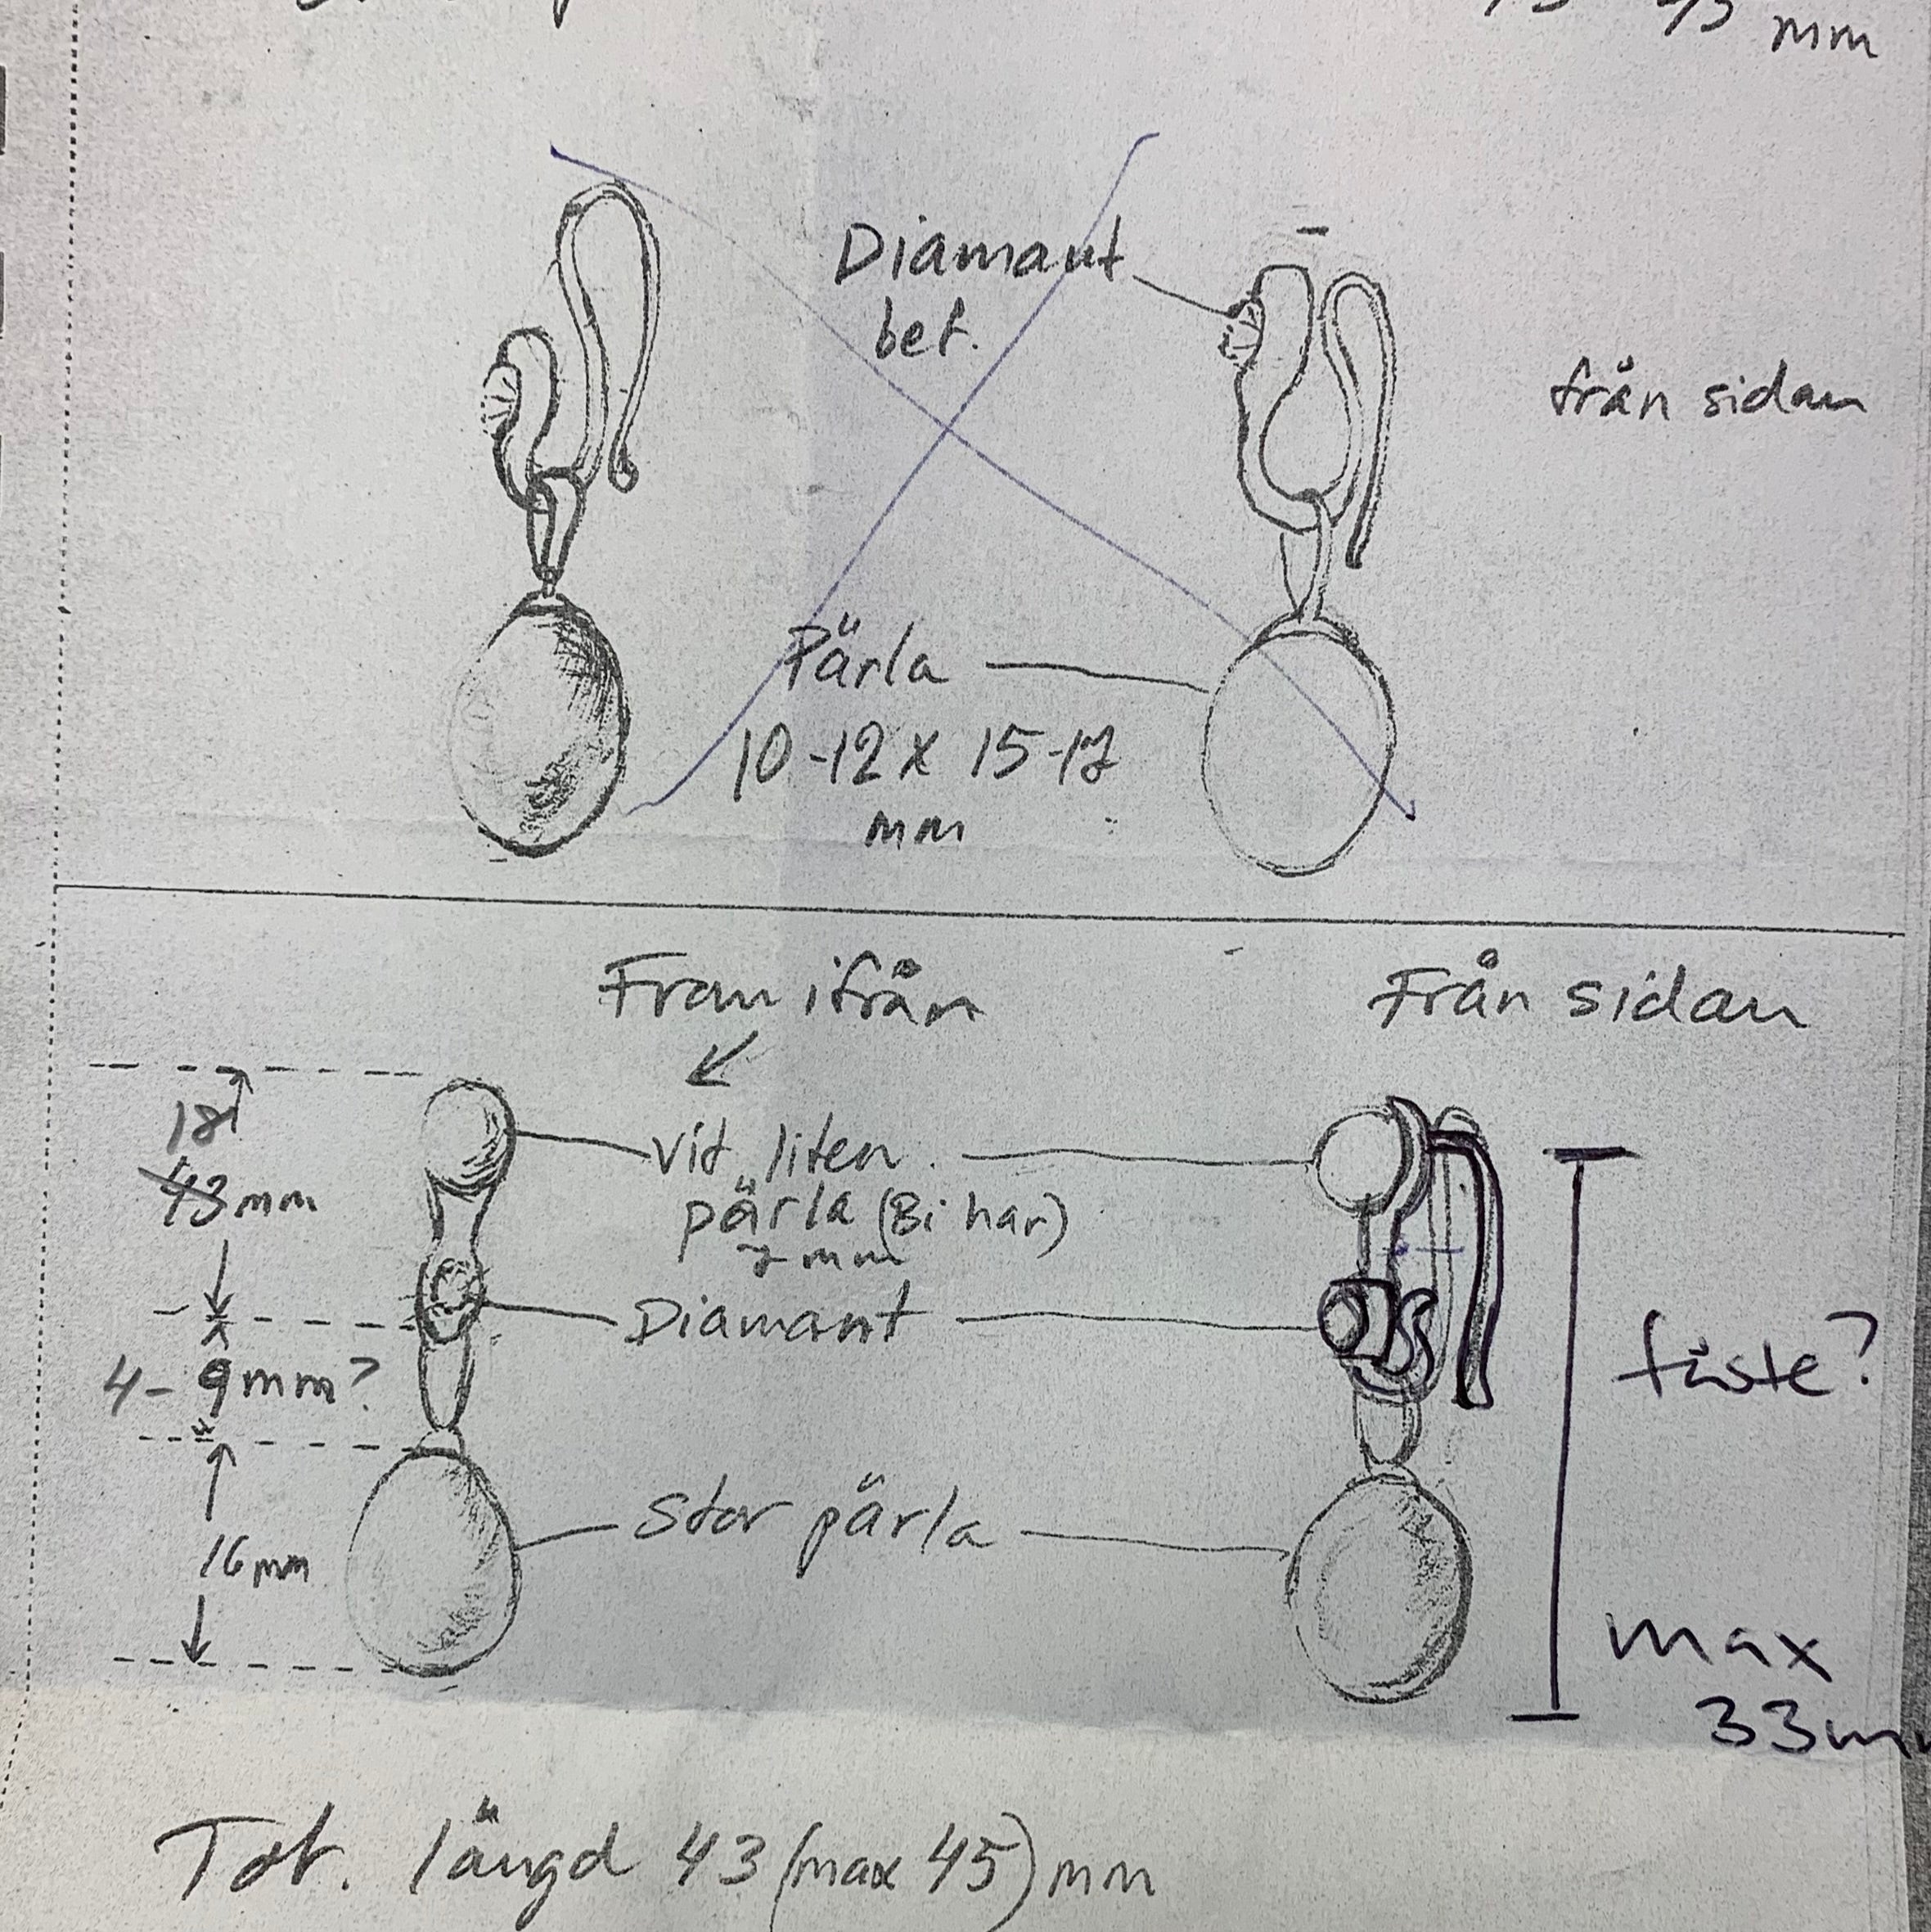 mm
Diamant
bet.
från sidan
Pärla
10-12 x 15-17
mm
Framifrån
Från sidan
18
43 mm
Vit liten
pärla (Bi har)
7 mm
Diamant
4- 9mm?
fäste?
Stor pärla
16 mm
max
33m
Tot. längd 43 (max 45) mm